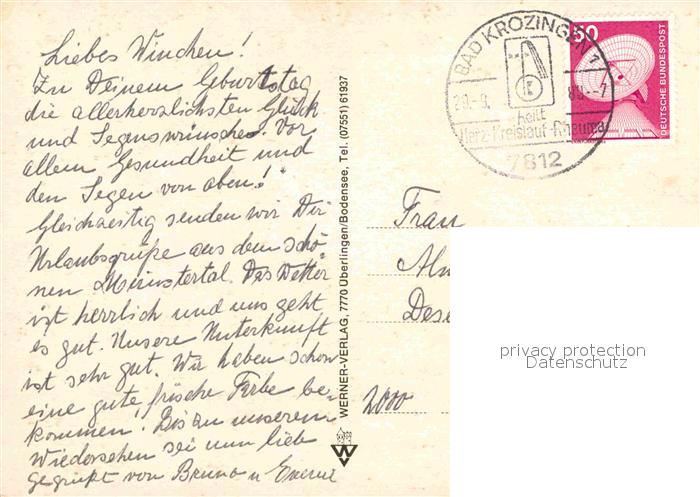 Liebes Winchen!
Zu Deinem Geburtstag
die allerherzlichsten Glück
und Segenswünsche. Vor
allem Gesundheit und
den Segen von oben!
Gleichzeitig senden wir Dir
Urlaubsgrüße aus dem schö-
nen Münstertal. Das Wetter
ist herrlich und uns geht
es gut. Unsere Unterkunft
ist sehr gut. Wir haben schon
eine gute frische Farbe be-
kommen! Bis zu unserem
Wiedersehen sei nun lieb
gegrüßt von Bruno u
WERNER-VERLAG, 7770 Überlingen/Bodensee, Tel. (07551) 61937
W
BAD KROZINGEN 1
heilt
Herz-Kreislauf-Rheuma
7812
50
DEUTSCHE BUNDESPOST
Frau
2000
privacy protection
Datenschutz